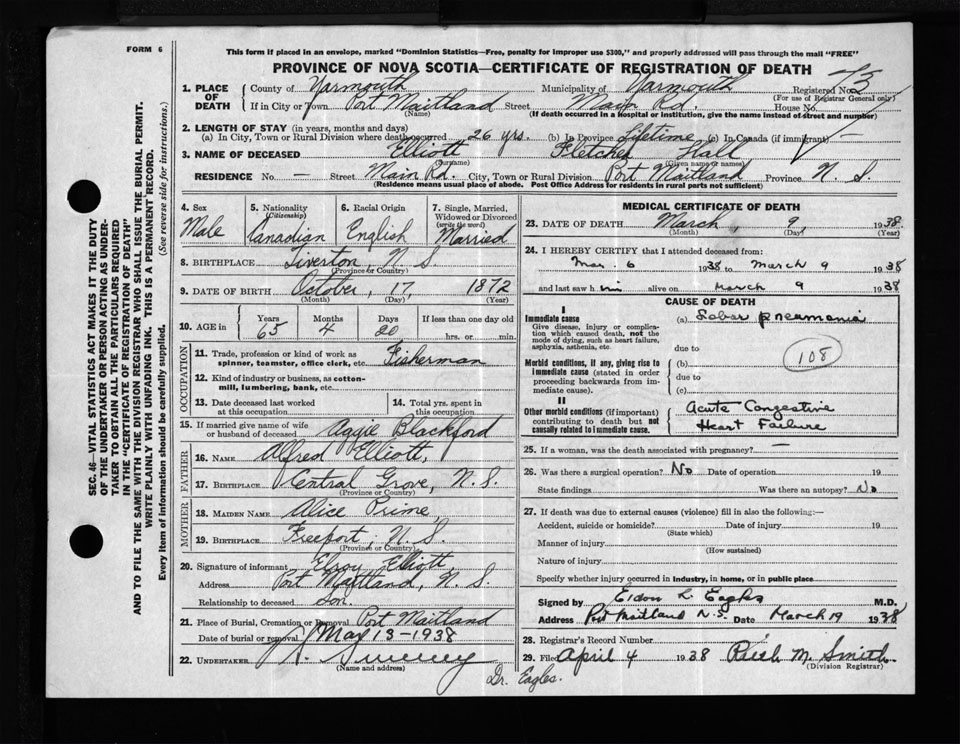 FORM 6
This form if placed in an envelope, marked "Dominion Statistics—Free, penalty for improper use $300," and properly addressed will pass through the mail "FREE"
PROVINCE OF NOVA SCOTIA—CERTIFICATE OF REGISTRATION OF DEATH
1. PLACE OF DEATH
County of Yarmouth Municipality of Yarmouth Registered No.
(For use of Registrar General only)
If in City or Town Port Maitland Street Main Rd. House No.
(Name) (If death occurred in a hospital or institution, give the name instead of street and number)
2. LENGTH OF STAY (in years, months and days)
(a) In City, Town or Rural Division where death occurred 26 yrs. (b) In Province Lifetime (c) In Canada (if immigrant) —
3. NAME OF DECEASED Elliott Fletcher Hall
(Surname) (Given name or names)
RESIDENCE No. — Street Main Rd. City, Town or Rural Division Port Maitland Province N. S.
(Residence means usual place of abode. Post Office Address for residents in rural parts not sufficient)
SEC. 46—VITAL STATISTICS ACT MAKES IT THE DUTY
OF THE UNDERTAKER OR PERSON ACTING AS UNDER-
TAKER TO OBTAIN ALL THE PARTICULARS REQUIRED
IN THE "CERTIFICATE OF REGISTRATION OF DEATH"
AND TO FILE THE SAME WITH THE DIVISION REGISTRAR WHO SHALL ISSUE THE BURIAL PERMIT.
WRITE PLAINLY WITH UNFADING INK. THIS IS A PERMANENT RECORD.
Every item of information should be carefully supplied. (See reverse side for instructions.)
4. Sex
Male
5. Nationality
(Citizenship)
Canadian
6. Racial Origin
English
7. Single, Married, Widowed or Divorced
(write the word)
Married
8. BIRTHPLACE Tiverton, N. S.
(Province or Country)
9. DATE OF BIRTH October, 17, 1872
(Month) (Day) (Year)
10. AGE in Years 65 Months 4 Days 20 If less than one day old
hrs. or min.
OCCUPATION
11. Trade, profession or kind of work as spinner, teamster, office clerk, etc. Fisherman
12. Kind of industry or business, as cotton-mill, lumbering, bank, etc.
13. Date deceased last worked at this occupation
14. Total yrs. spent in this occupation
15. If married give name of wife or husband of deceased Aggie Blackford
FATHER
16. NAME Alfred Elliott,
17. BIRTHPLACE Central Grove, N. S.
(Province or Country)
MOTHER
18. MAIDEN NAME Alice Prime,
19. BIRTHPLACE Freeport, N. S.
(Province or Country)
20. Signature of informant Elroy Elliott,
Address Port Maitland, N. S.
Relationship to deceased Son.
21. Place of Burial, Cremation or Removal Port Maitland
Date of burial or removal 13-1938
22. UNDERTAKER Sweeney
(Name and address)
Dr. Eagles.
MEDICAL CERTIFICATE OF DEATH
23. DATE OF DEATH March, 9 1938.
(Month) (Day) (Year)
24. I HEREBY CERTIFY that I attended deceased from:
Mar. 6 1938 to March 9 1938
and last saw him alive on March 9 1938
CAUSE OF DEATH
I
Immediate cause (a) Lobar pneumonia
Give disease, injury or complication which caused death, not the mode of dying, such as heart failure, asphyxia, asthenia, etc.
due to
108
Morbid conditions, if any, giving rise to immediate cause (stated in order proceeding backwards from immediate cause).
(b)
due to
(c)
II
Other morbid conditions (if important) contributing to death but not causally related to immediate cause.
Acute Congestive
Heart Failure
25. If a woman, was the death associated with pregnancy? —
26. Was there a surgical operation? No Date of operation 19
State findings Was there an autopsy? No
27. If death was due to external causes (violence) fill in also the following:—
Accident, suicide or homicide? Date of injury 19
(State which)
Manner of injury
(How sustained)
Nature of injury
Specify whether injury occurred in industry, in home, or in public place
Signed by Eldon L. Eagles M.D.
Address Port Maitland N.S. Date March 19 1938
28. Registrar's Record Number
29. Filed April 4 1938 M. Smith
(Division Registrar)